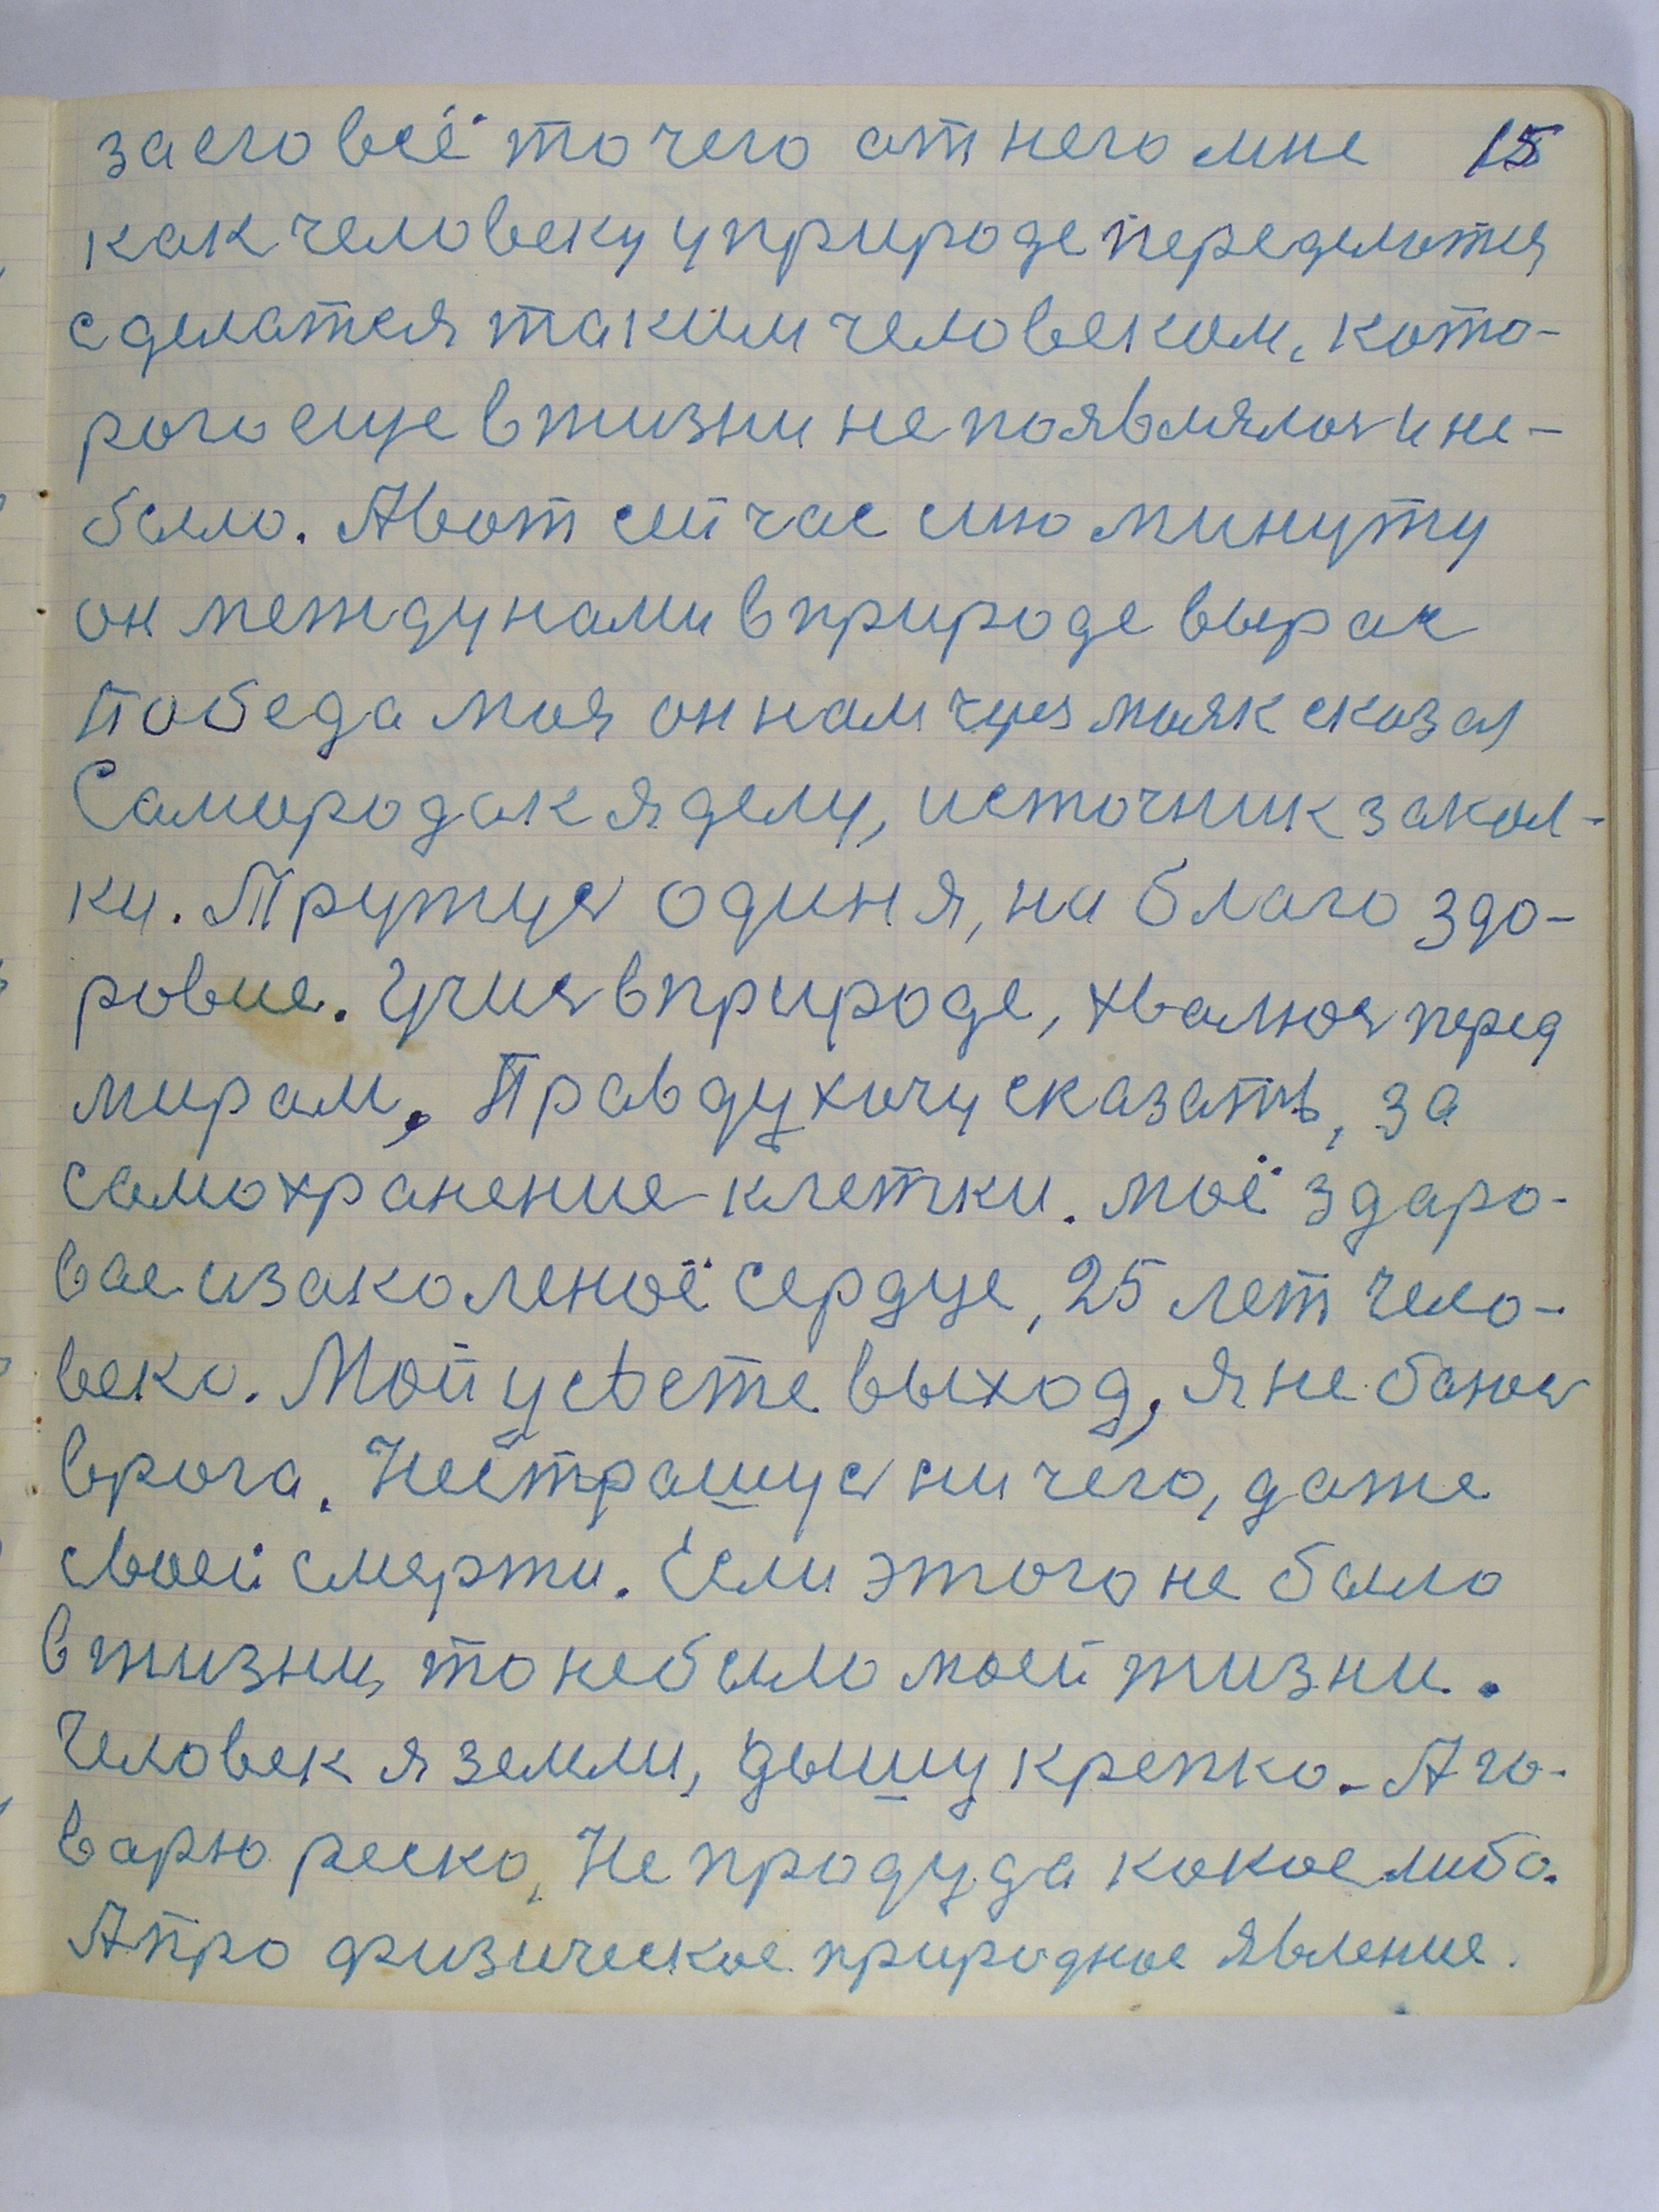 за его всё то чего от него мне 15
как человеку у природе переделатся
сделатся таким человеком, кото-
рого еще в жизни не появлялося и не-
было. А вот сейчас сию минуту
он между нами в природе вырас
Победа моя он нам через маяк сказал
Самародак я делу, источник закал-
ки. Тружуся один я, на благо здо-
ровие. Учуся в природе, хвалюся перед
мирам, Правду хочу сказать, за
самохранение клетки. моё здаро-
вае изаколеноё сердце, 25 лет чело-
века. Мой усвете выход, я не баюся
врога. Нестрашуся ничего, даже
своей смерти. Если этого не было
в жизни, то небыло моей жизни.
Человек я земли, дышу крепко. А го-
варю реско, Не продуда какое либо.
А про физическое природное явление.